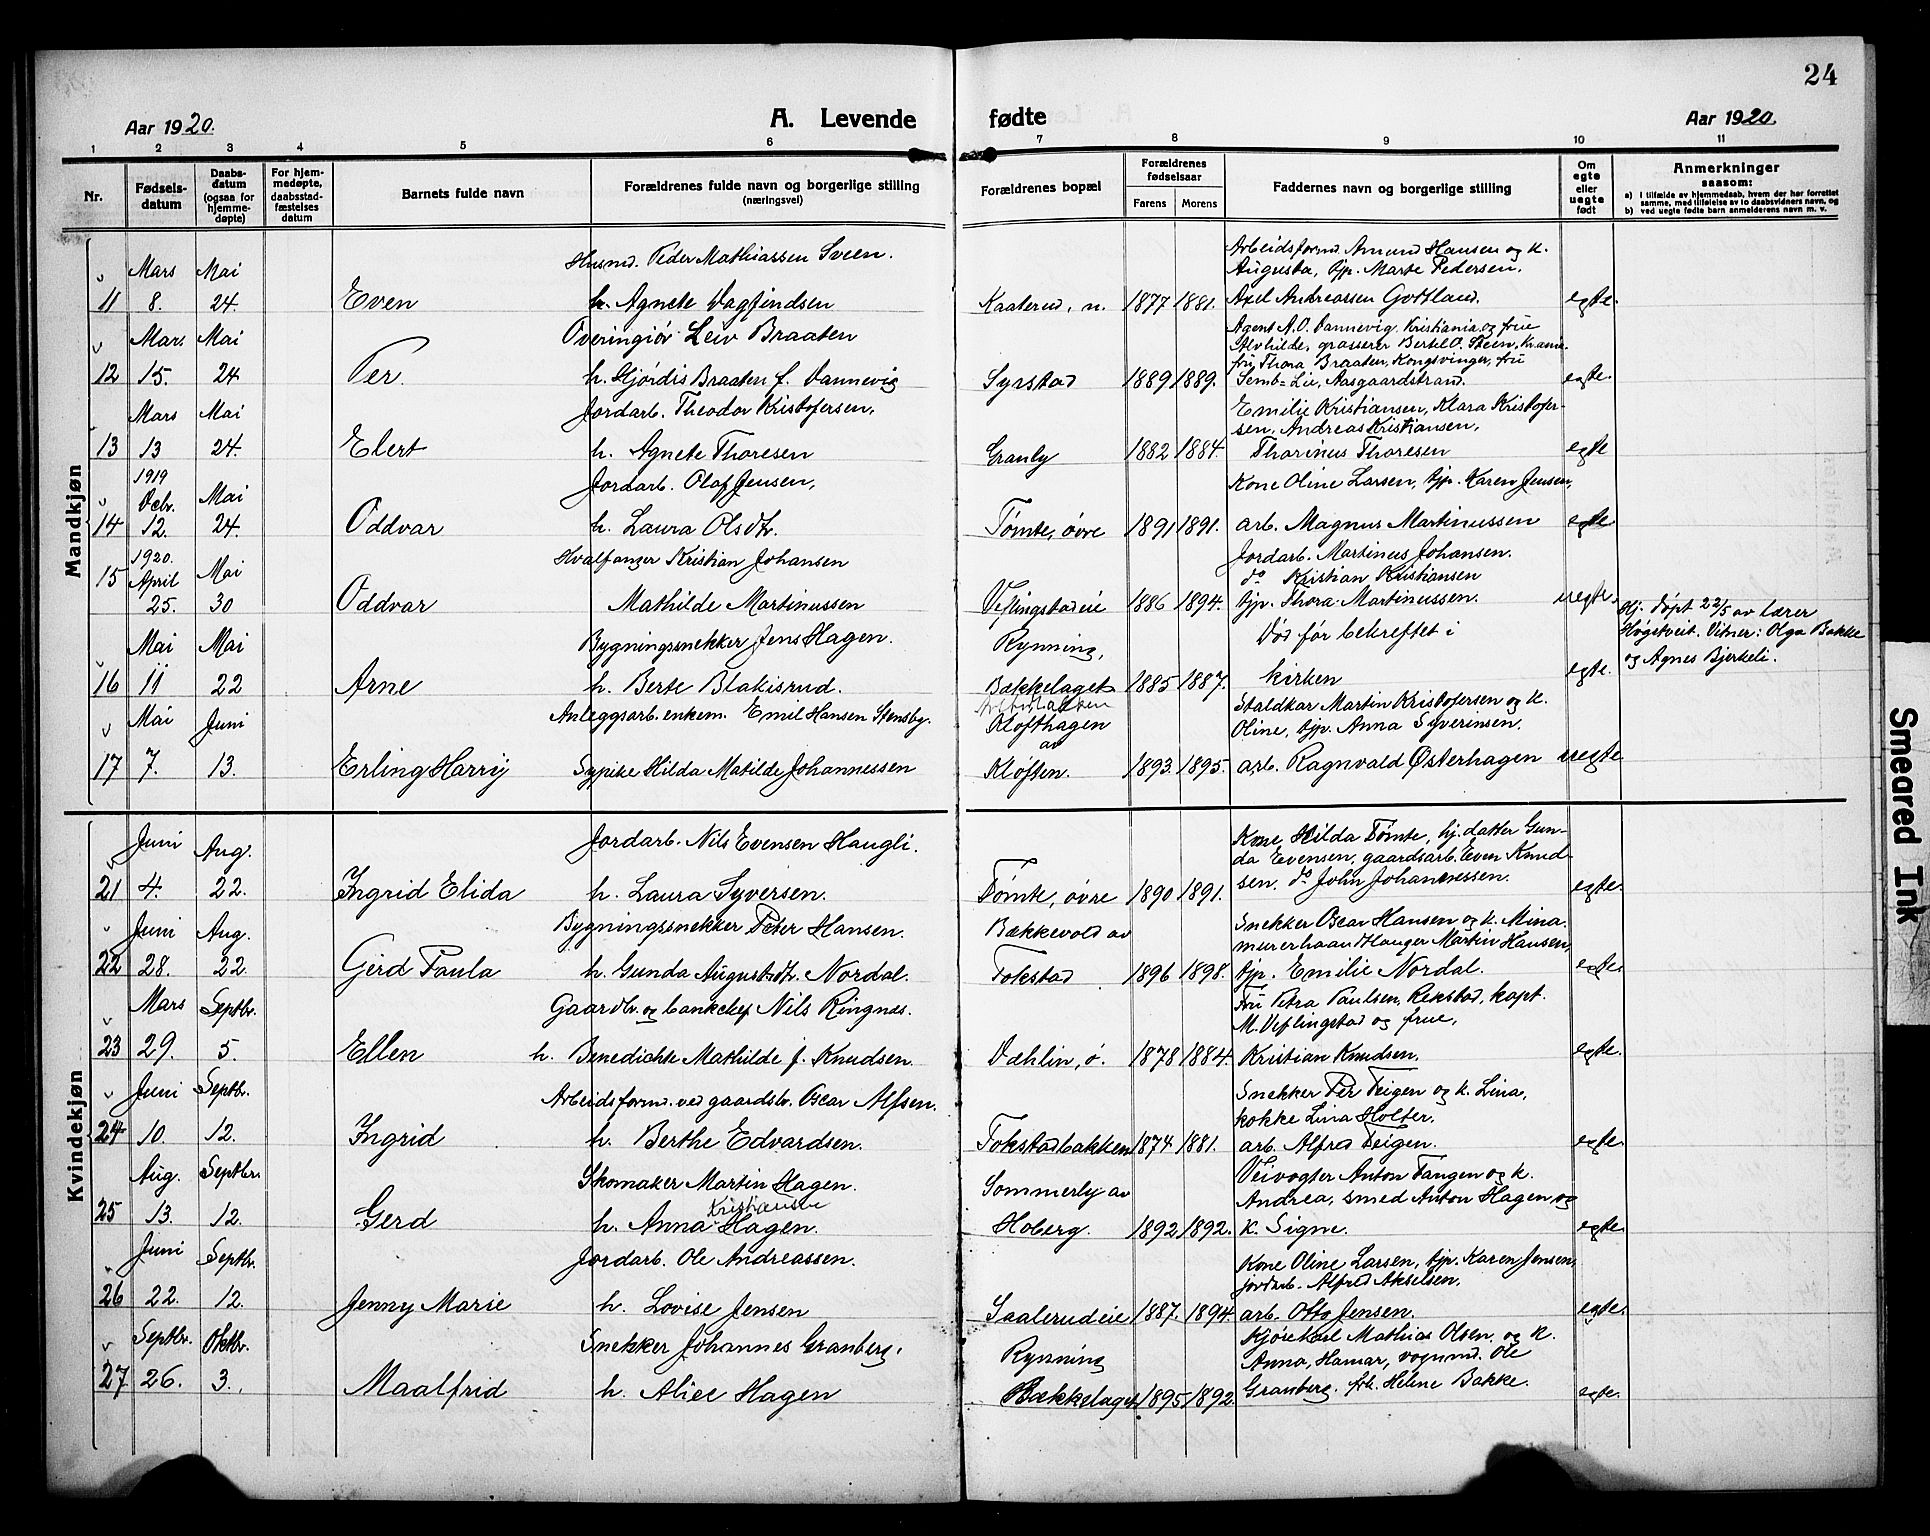 24
Aar 1920.
A. Levende fødte
Aar 1920.
1 2 3 4 5 6 7 8 9 10 11
Nr.
Fødsels-
datum
Daabs-
datum
(ogsaa for
hjemme-
døpte)
For hjem-
medøpte,
daabsstad-
fæstelses
datum
Barnets fulde navn
Forældrenes fulde navn og borgerlige stilling
(næringsvei)
Forældrenes bopæl
Forældrenes
fødselsaar
Farens Morens
Faddernes navn og borgerlige stilling
Om
egte
eller
uegte
født
Anmerkninger
saasom:
a) i tilfælde av hjemmedaab, hvem der har forrettet
samme, med tilføielse av to daabsvidners navn, og
b) ved uegte fødte barn anmelderens navn m. v.
Mandkjøn
Husmd. Peder Mathiassen Sveen.
Arbeidsformd Amund Hansen og k.
Mars Mai
Augusta, tjp. Marte Pedersen.
11 8. 24. Even h. Agnete Dagfindsen Kaaterud, n. 1877 1881. Axel Andreassen Gotland. egte.
Mars. Mai Overingiør Leiv Braaten
Agent A.O. Dannevig, Kristiania og frue
Alvhilde, grosserer Bertel O. Steen, Krania.
fru Thora Braaten, Kongsvinger, fru
12 15. 24 Per. h. Hjørdis Braaten f. Dannevig Syrstad 1889 1889. Semb=Lie, Aasgaardstrand. egte.
Mars Mai Jordarb. Theodor Kristofersen.
Emilie Kristiansen, Klara Kristofer-
sen, Andreas Kristiansen,
13 13 24. Elert h. Agnete Thoresen Granly 1882 1884. Thorinus Thoresen egte
1919
Decbr. Mai Jordarb. Olaf Jensen,
Kone Oline Larsen, tjp. Karen Jensen,
14 12. 24. Oddvar h. Laura Olsdtr. Tømte, øvre 1891 1891. arb. Magnus Martinussen egte
1920.
April Mai Hvalfanger Kristian Johansen
Jordarb. Martinus Johansen.
do Kristian Kristiansen
15 25. 30 Oddvar Mathilde Martinussen Veflingstadeie 1886 1894. tjp. Thora Martinussen. uegte.
Mai Mai Bygningssnekker Jens Hagen.
Rynning,
Død før bekreftet i
Hj. døpt 22/5 av lærer
Høgstveit. Vitner: Olga Bakke
og Agnes Bjerkeli.
16 11 22 Arne h. Berte Blakisrud. Bækkelaget 1885 1887. kirken egte.
Mai Juni Anleggsarb. enkem. Emil Hansen Stensby.
Klofthagen
av
Staldkar Martin Kristofersen og k.
Oline, tjp. Anna Syverinsen.
17 7. 13. Erling Harry Sypike Hilda Matilde Johannessen Kløften. 1893. 1895. arb. Ragnvald Østerhagen uegte
Kvindekjøn
Juni Aug. Jordarb. Nils Evensen Haugli.
Kone Hilda Tømte, hj. datter Gun-
da Evensen, gaardsarb. Even Knud-
21 4. 22. Ingrid Elida h. Laura Syversen. Tømte, øvre 1890 1891. sen. do John Johannessen. egte.
Juni Aug. Bygningssnekker Peter Hansen.
Bækkevold av
Snekker Oscar Hansen og k. Mina.
murerhaandtlanger Martin Hansen,
22 28. 22. Gerd Paula h. Gunda Augustdtr. Nordal. Fokstad 1896 1898. tjp. Emilie Nordal. egte.
Mars Septbr. Gaardbr. og bankchef Nils Ringnes.
Fru Petra Paulsen, Rekstad, kapt.
M. Veflingstad og frue,
23 29. 5. Ellen h. Benedickte Mathilde f. Knudsen. Dæhlin, ø. 1878 1884. Kristian Knudsen. egte.
Juni Septbr. Arbeidsformd. ved gaardsbr. Oscar Alfsen.
Snekker Per Teigen og k. Lina,
kokke Lina Holter.
24 10. 12. Ingrid h. Berthe Edvardsen. Fokstadbakken 1874. 1881. arb. Alfred Teigen. egte.
Aug. Septbr. Skomaker Martin Hagen.
Sommerly av
Veivogter Anton Tangen og k.
Andrea, smed Anton Hagen og
Kristiansen
25 13. 12. Gerd h. Anna Hagen. Hoberg. 1892 1892. k. Signe. egte.
Juni Septbr. Jordarb. Ole Andreassen.
Kone Oline Larsen, tjp. Karen Jensen,
jordarb. Alfred Akselsen.
26 22. 12. Jenny Marie h. Lovise Jensen Saalerudeie 1887. 1894. arb. Otto Jensen. egte.
Septbr. Oktbr. Snekker Johannes Granberg.
Rynning
Kjørekarl Mathias Olsen og k.
Anna, Hamar, vognmd. Ole
27 26. 3. Maalfrid h. Alice Hagen Bækkelaget 1895 1892. Granberg. frk. Helene Bakke. egte.
Smeared Ink